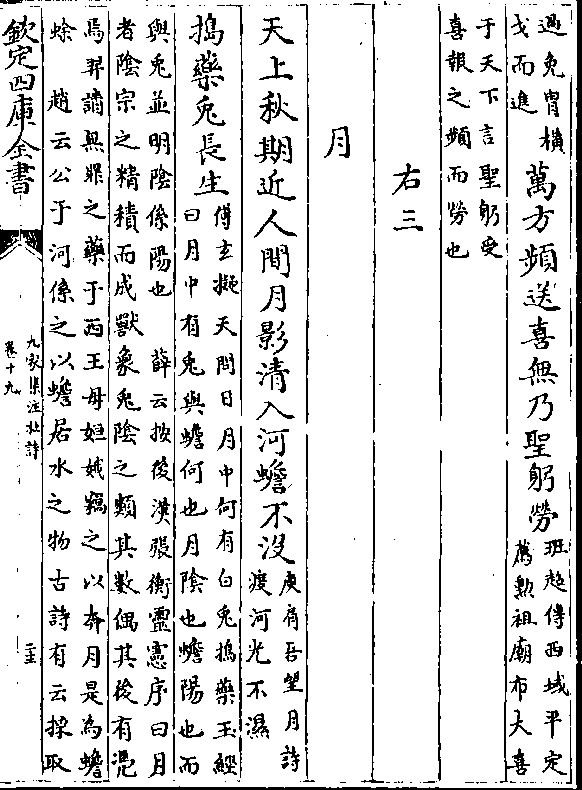 過兔罝橫
戈而進
萬方頻送喜無乃聖躬勞
班超傳西域平定
薦勲祖廟布大喜
于天下言聖躬受
喜報之頻而勞也
右三
月
天上秋期近人間月影清入河蟾不沒
庾肩吾望月詩
渡河光不濕
搗藥兔長生
傅玄擬天問曰月中何有白兔搗藥五經
曰月中有兔與蟾何也月陰也蟾陽也而
與兔並明陰係陽也 薛云按後漢張衡靈憲序曰月
者陰宗之精積而成獸象兔陰之類其數偶其後有憑
焉羿請無死之藥于西王母姮娥竊之以奔月是為蟾
蜍 趙云公于河係之以蟾居水之物古詩有云採取
欽定四庫全書
九家集注杜詩
卷十九